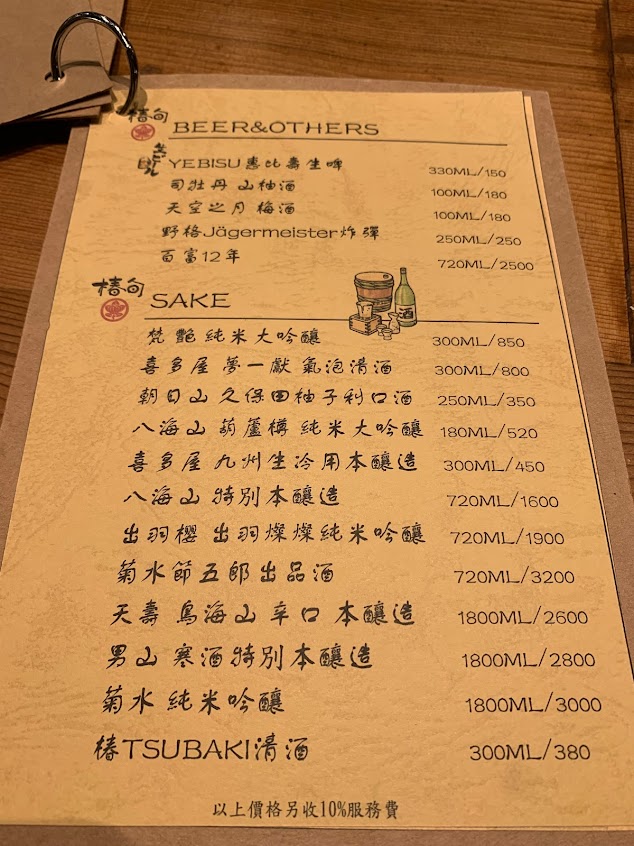 椿旬
BEER&OTHERS
YEBISU惠比壽生啤 330ML/150
司牡丹 山柚酒 100ML/180
天空之月 梅酒 100ML/180
野格Jägermeister炸彈 250ML/250
百富12年 720ML/2500
椿旬
SAKE
梵 艷 純米大吟釀 300ML/850
喜多屋 夢一獻 氣泡清酒 300ML/800
朝日山 久保田柚子利口酒 250ML/350
八海山 葫蘆樽 純米大吟釀 180ML/520
喜多屋 九州生冷用本釀造 300ML/450
八海山 特別本釀造 720ML/1600
出羽櫻 出羽燦燦純米吟釀 720ML/1900
菊水節五郎出品酒 720ML/3200
天壽 鳥海山 辛口 本釀造 1800ML/2600
男山 寒酒特別本釀造 1800ML/2800
菊水 純米吟釀 1800ML/3000
椿TSUBAKI清酒 300ML/380
以上價格另收10%服務費